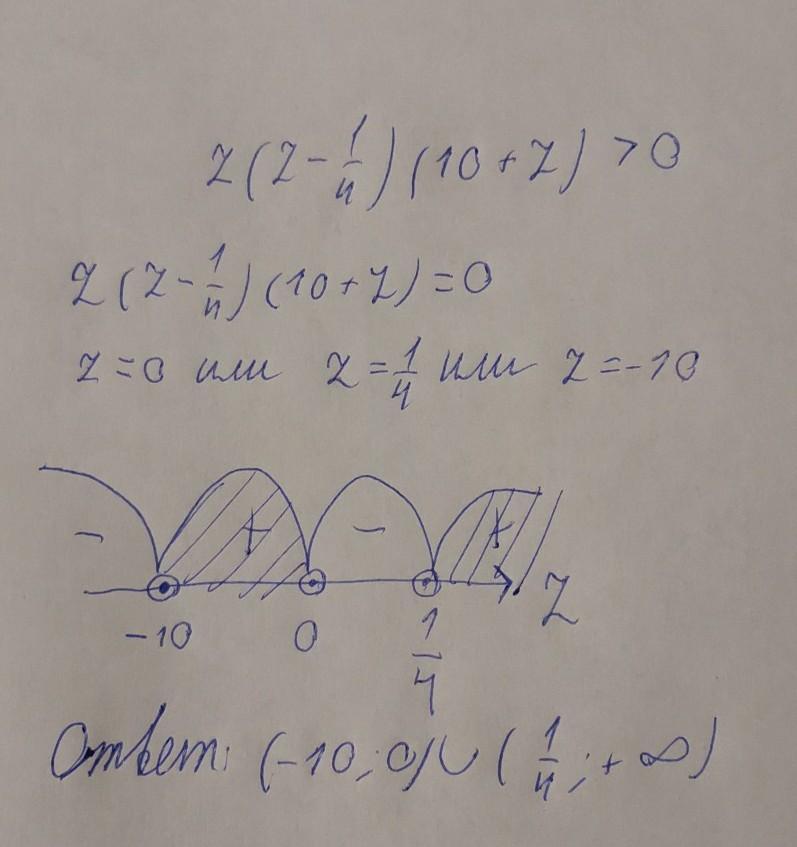 z(z-1/4)(10+z)>0
z(z-1/4)(10+z)=0
z=0 или z=1/4 или z=-10
- + - +
-10 0 1/4 z
Ответ: (-10;0)∪(1/4;+∞)